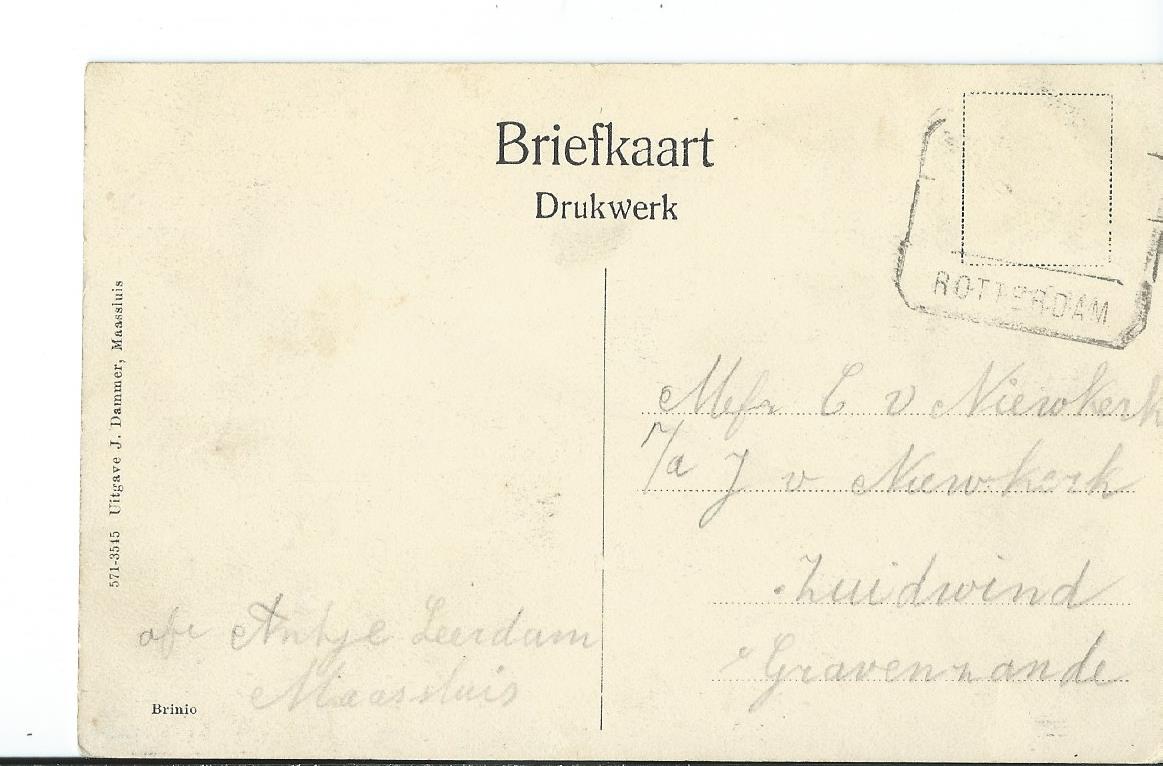 Briefkaart
Drukwerk
ROTTERDAM
571-3515 Uitgave J. Dammer, Maassluis
Mejr C v Niewkerk
p/a J v Niewkerk
Zuidwind
s Gravenzande
afz Antje Leerdam
Maassluis
Brinio